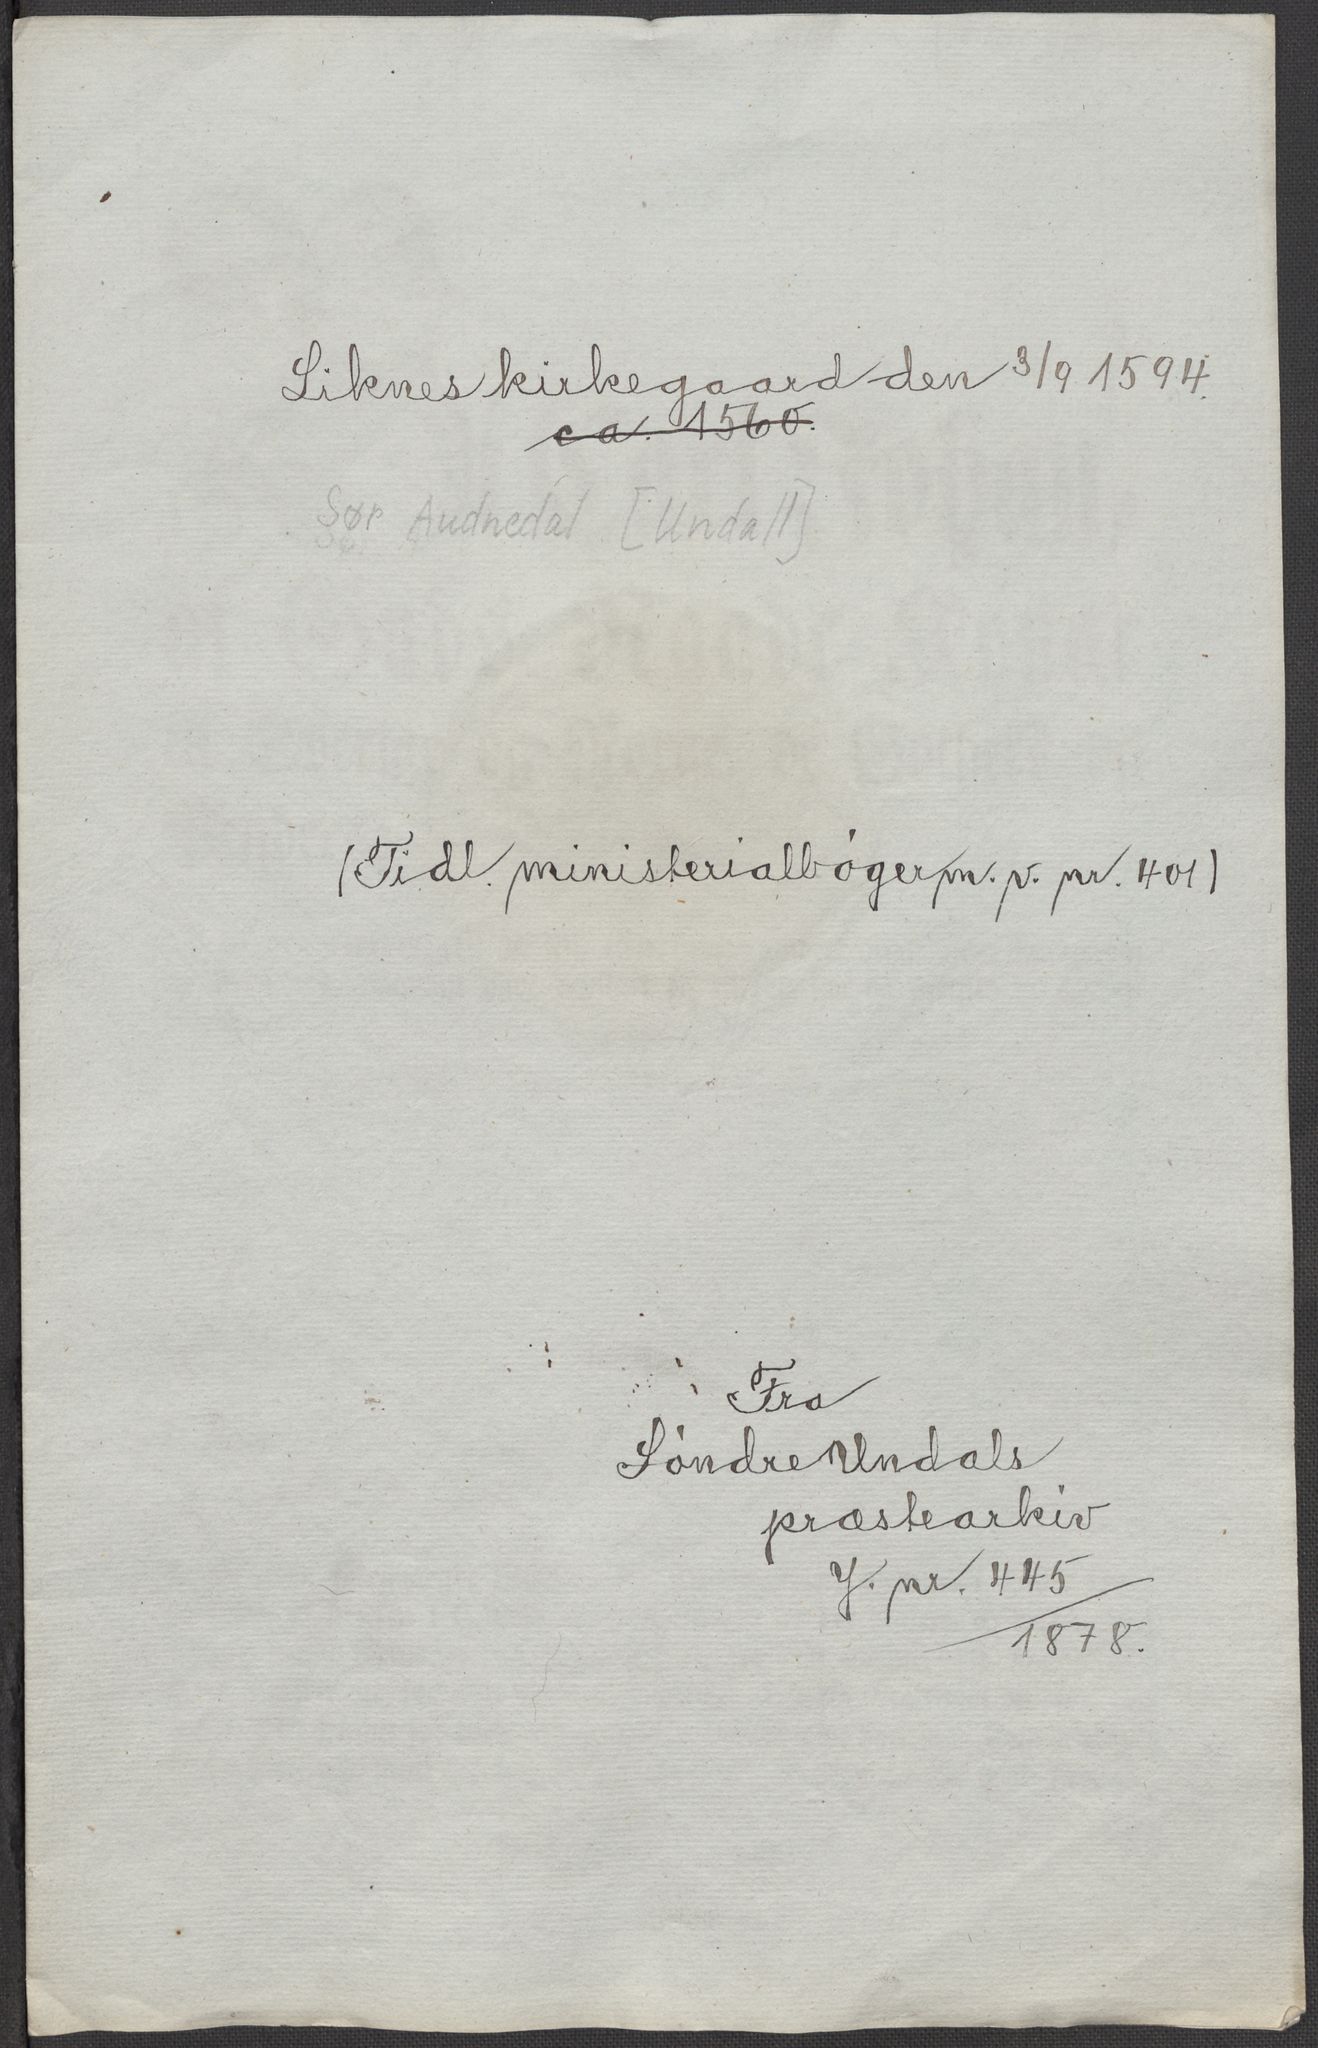 Liknes kirkegaard den 3/9 1594.
ca. 1560.
Sør Audnedal [Undall]
(Tidl. ministerialbóger m. v. nr. 401)
Fra
Sóndre Undals
præstearkiv
J. nr. 445
1878.